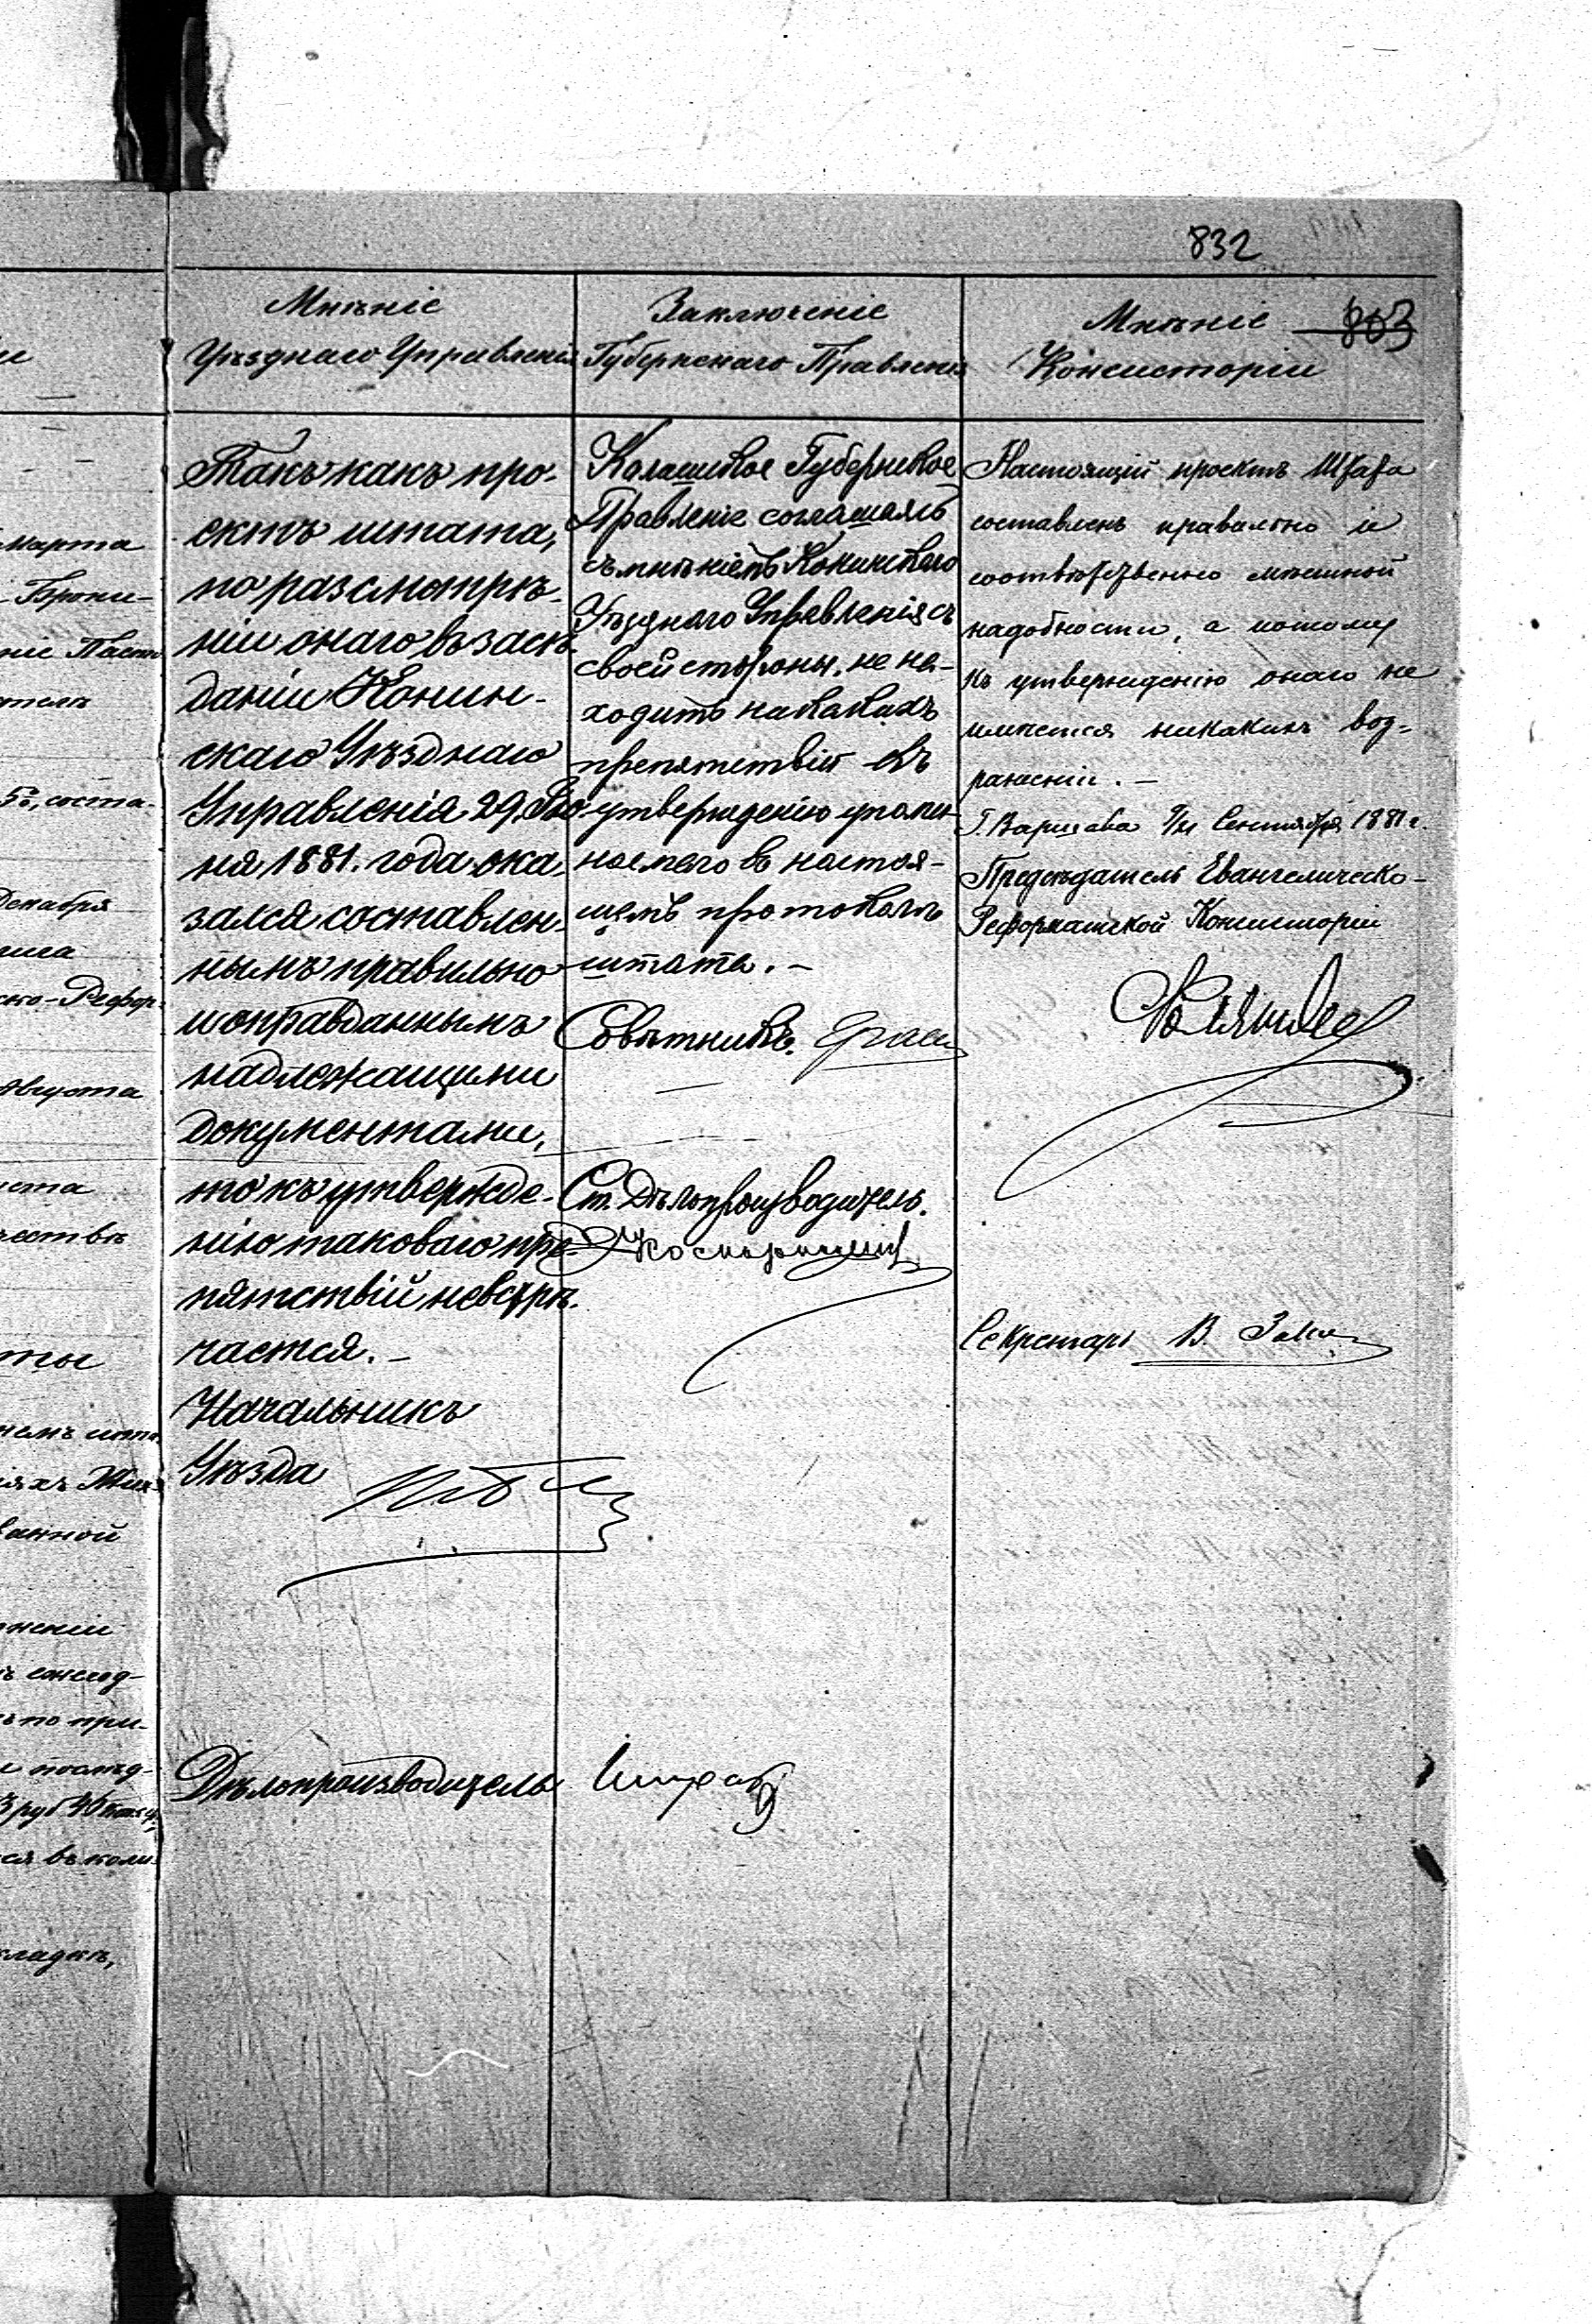 832
803
Мнѣніе
Уѣзднаго Управленія
Такъ какъ про-
ектъ штата,
по разсмотрѣ-
ніи онаго въ засѣ-
даніи Конин-
скаго Уѣзднаго
Управленія 29 Iю
ня 1881. года ока-
зался составлен-
нымъ правильно
и оправданнымъ
надлежащими
документами,
то къ утвержде-
нію таковаго пре-
пятствій невстрѣ-
чается.—
Начальникъ
Уѣзда
Дѣлопроизводитель
Заключеніе
Губернскаго Правленія
Калишское Губернское
Правленіе соглашаясь
съ мнѣніемъ Конинскаго
Уѣзднаго Управленія съ
своей стороны, не на-
ходитъ никакихъ
препятствій къ
утвержденію упомя-
наемаго въ настоя-
щемъ протоколѣ
штата.—
Совѣтникъ.
Ст. Дѣлопроизводитель.
Мнѣніе
Консисторіи
Настоящій проектъ Штата
составленъ правильно и
соотвѣтственно мѣстной
надобности, а потому
къ утвержденію онаго не
имѣется никакихъ воз-
раженій.—
Г. Варшава 9/21 Сентября 1881 г.
Предсѣдатель Евангелическо-
Реформатской Консисторіи
Секретарь В.
марта
ніе Пасто
5 г., соста-
Декабря
ско-Рефор-
Августа
ванной
ъ по при-
3 руб 40 коп
ся въ коли-